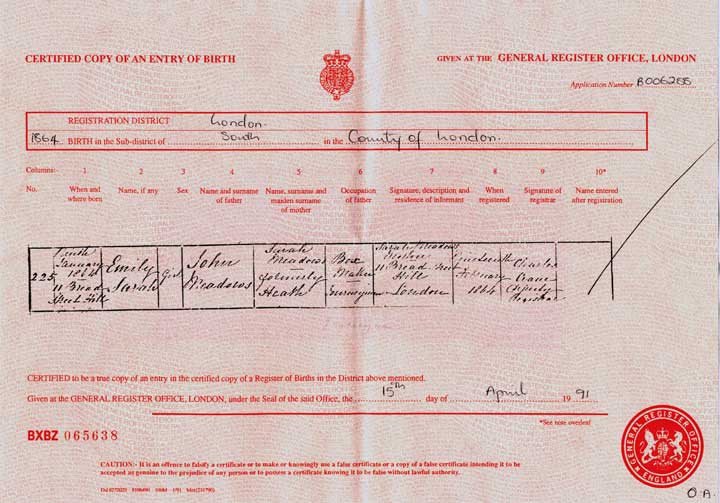 CERTIFIED COPY OF AN ENTRY OF BIRTH
GIVEN AT THE GENERAL REGISTER OFFICE, LONDON
Application Number B006285
REGISTRATION DISTRICT London.
1864. BIRTH in the Sub-district of South in the County of London.
Columns:- 1 2 3 4 5 6 7 8 9 10*
No. When and where born Name, if any Sex Name and surname of father Name, surname and maiden surname of mother Occupation of father Signature, description and residence of informant When registered Signature of registrar Name entered after registration
225 January 1864 11 Broad Hill
Emily Sarah
Girl
John Meadows
Sarah Meadows formerly Heath
Box Maker
Sarah Meadows Mother 11 Broad Hill London
February 1864
Charles Crane Deputy Registrar
CERTIFIED to be a true copy of an entry in the certified copy of a Register of Births in the District above mentioned.
Given at the GENERAL REGISTER OFFICE, LONDON, under the Seal of the said Office, the 15th day of April 1991
*See note overleaf
BXBZ 065638
GENERAL REGISTER OFFICE
ENGLAND
CAUTION:- It is an offence to falsify a certificate or to make or knowingly use a false certificate or a copy of a false certificate intending it to be
accepted as genuine to the prejudice of any person or to possess a certificate knowing it to be false without lawful authority.
O.A.